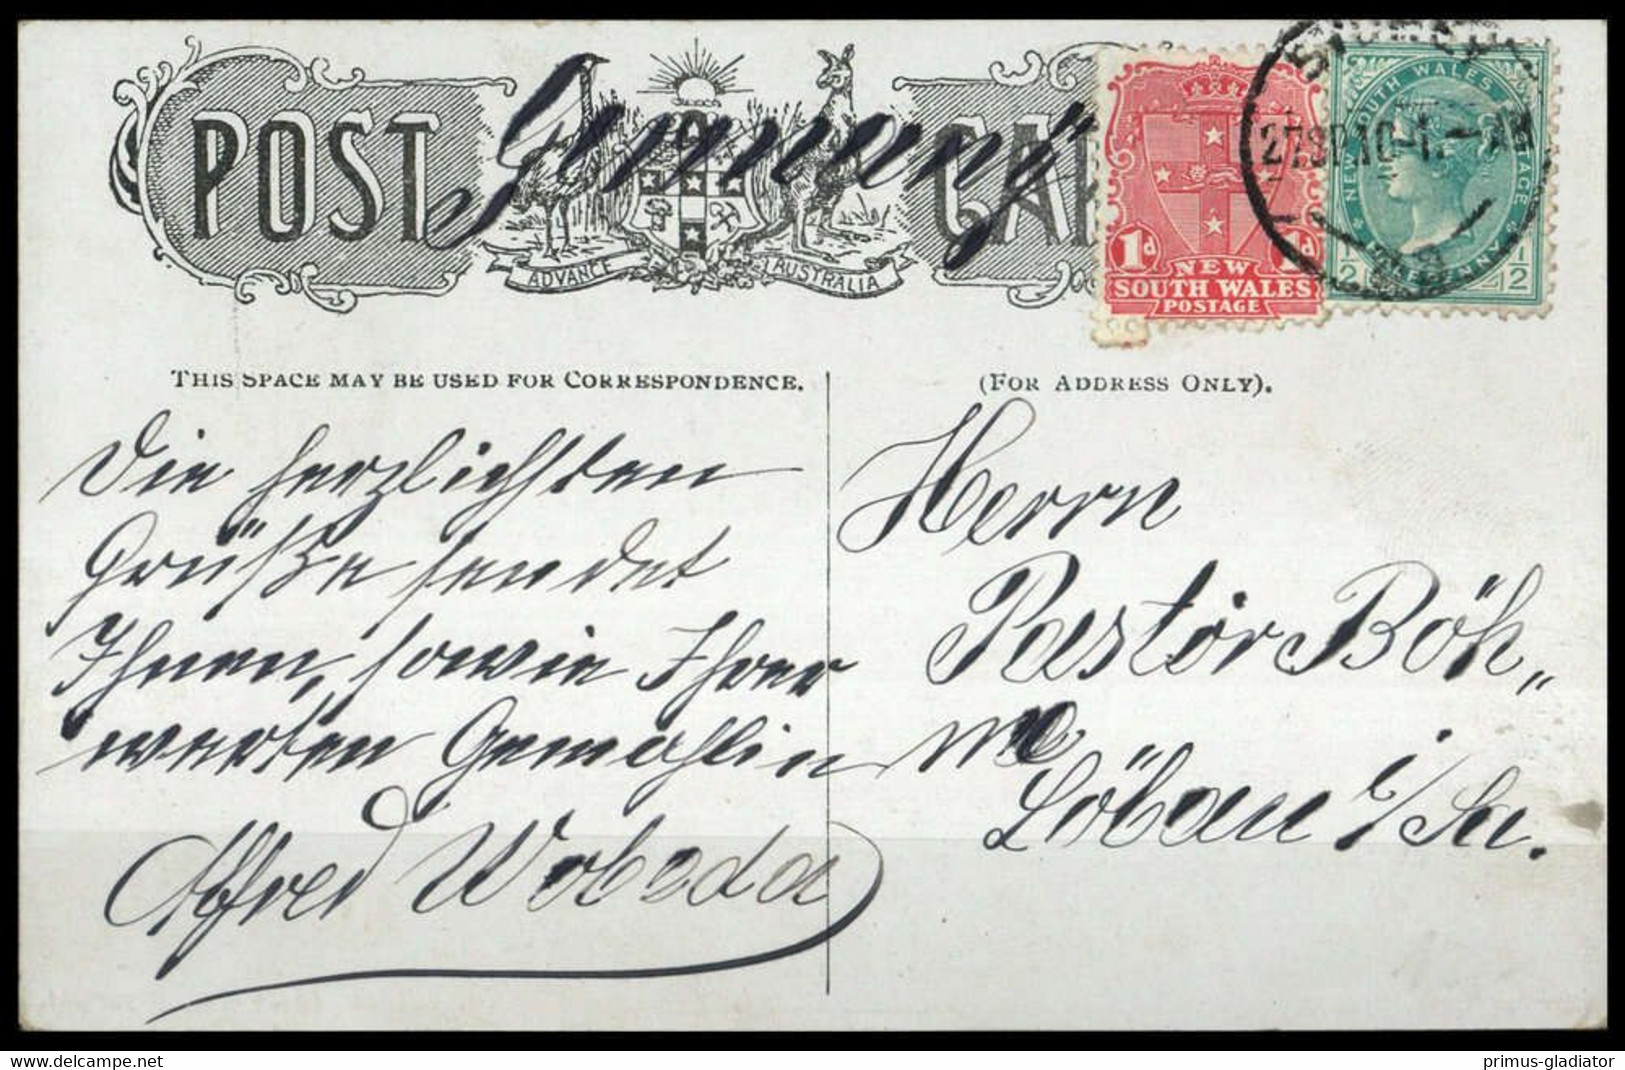 POST CAR
Germany
ADVANCE AUSTRALIA
1d 1d
NEW
SOUTH WALES
POSTAGE
NEW SOUTH WALES POSTAGE
1/2 1/2
SYDNEY
THIS SPACE MAY BE USED FOR CORRESPONDENCE.
Die herzlichsten
Grüße sendet
Ihnen, sowie Ihrer
werten Gemahlin
Alfred Wobeda
(FOR ADDRESS ONLY).
Herrn
Pastor Böh„
me
Löbau i/Sa.
delcampe.net
primus-gladiator